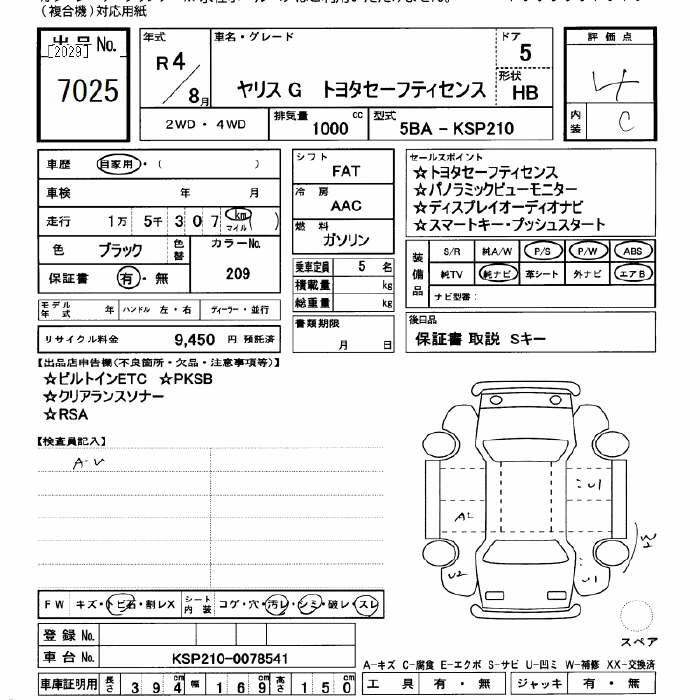 （複合機）対応用紙
出品No.
[2029]
7025
年式
R4/8月
車名・グレード
ヤリス G トヨタセーフティセンス
ドア
5
形状
HB
評価点
4
内装
C
2WD・4WD
排気量
1000 cc
型式
5BA - KSP210
車歴 自家用・( )
車検 年 月
走行 1万 5千 307 km マイル ( )
色 ブラック 色替
カラーNo.
209
保証書 有・無
シフト
FAT
冷房
AAC
燃料
ガソリン
乗車定員 5 名
積載量 kg
総重量 kg
セールスポイント
☆トヨタセーフティセンス
☆パノラミックビューモニター
☆ディスプレイオーディオナビ
☆スマートキー・プッシュスタート
装備品
S/R 純A/W P/S P/W ABS
純TV 純ナビ 革シート 外ナビ エアB
ナビ型番：
モデル年式 年 ハンドル 左・右 ディーラー・並行
リサイクル料金 9,450 円 預託済
書類期限
月 日
後日品
保証書 取説 Sキー
【出品店申告欄(不良箇所・欠品・注意事項等)】
☆ビルトインETC ☆PKSB
☆クリアランスソナー
☆RSA
【検査員記入】
A-U
U1
AL
U2
U1
W2
スペア
FW キズ・トビ石・割レX
シート内装 コゲ・穴・汚レ・シミ・破レ・スレ
登録No.
車台No. KSP210-0078541
A-キズ C-腐食 E-エクボ S-サビ U-凹ミ W-補修 XX-交換済
車庫証明用 長さ 394 cm 幅 169 cm 高さ 150 cm
工具 有・無 ジャッキ 有・無